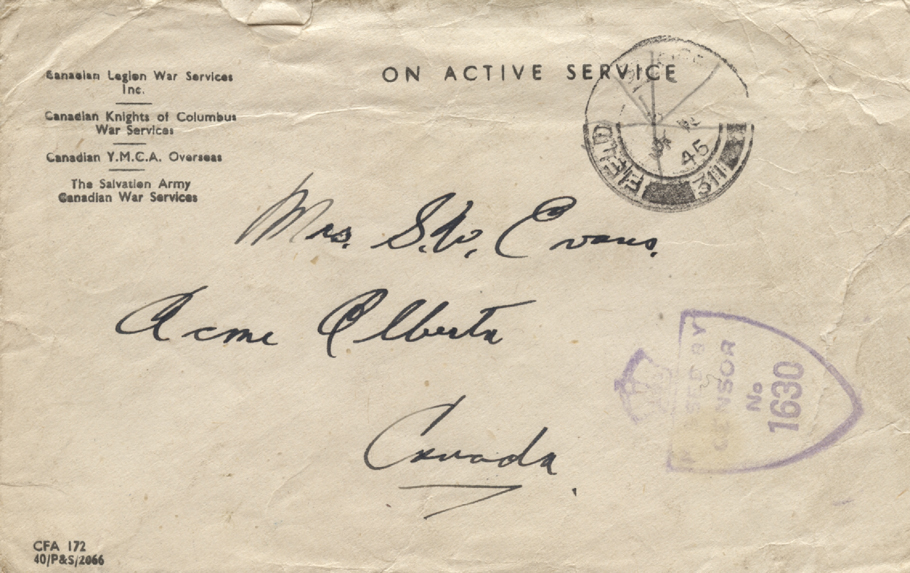 Canadian Legion War Services
Inc.
Canadian Knights of Columbus
War Services
Canadian Y.M.C.A. Overseas
The Salvation Army
Canadian War Services
ON ACTIVE SERVICE
FIELD
45
311
Mrs. S.W. Evans.
Acme Alberta
Canada.
BY
CENSOR
No
1630
CFA 172
40/P&S/2066